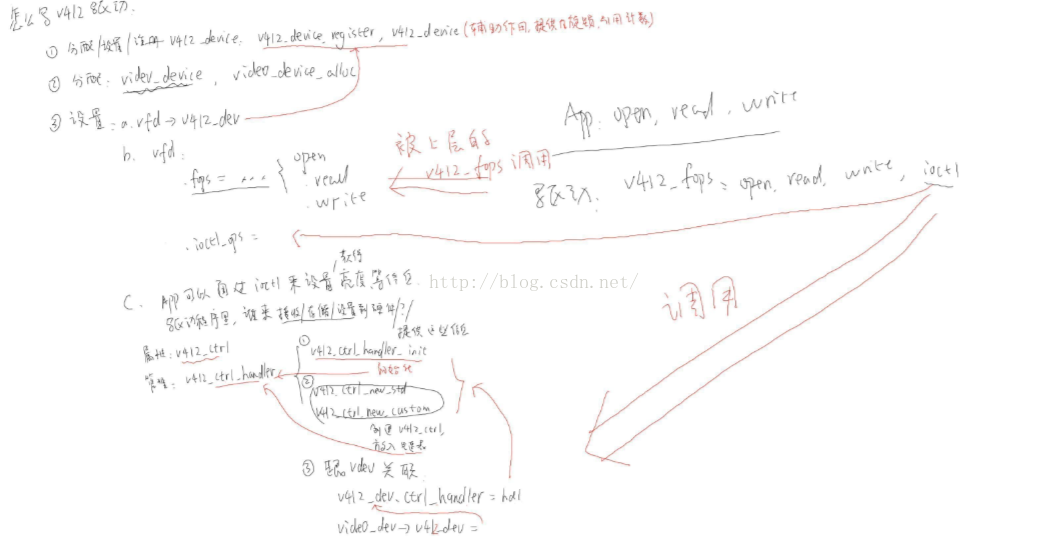 怎么写v4l2驱动.
① 分配/设置/注册 v4l2_device. v4l2_device_register, v4l2_device (辅助作用, 提供自旋锁, 引用计数)
② 分配: video_device, video_device_alloc
③ 设置: a. vfd→v4l2_dev
App: open, read, write
b. vfd:
.fops = .... { open
.read
.write
被上层的
v4l2_fops 调用
驱动: v4l2_fops: open, read, write, ioctl
.ioctl_ops =
http://blog.csdn.net/
获得
c. App可以通过ioctl来设置亮度等信息
驱动程序里, 谁来接收/存储/设置到硬件/?/
提供这些信息
调用
属性: v4l2_ctrl
管理: v4l2_ctrl_handler
① v4l2_ctrl_handler_init
初始化
② v4l2_ctrl_new_std
v4l2_ctrl_new_custom
创建 v4l2_ctrl,
放入
③ 跟vdev关联
v4l2_dev.ctrl_handler = hdl
video_dev→v4l2_dev =